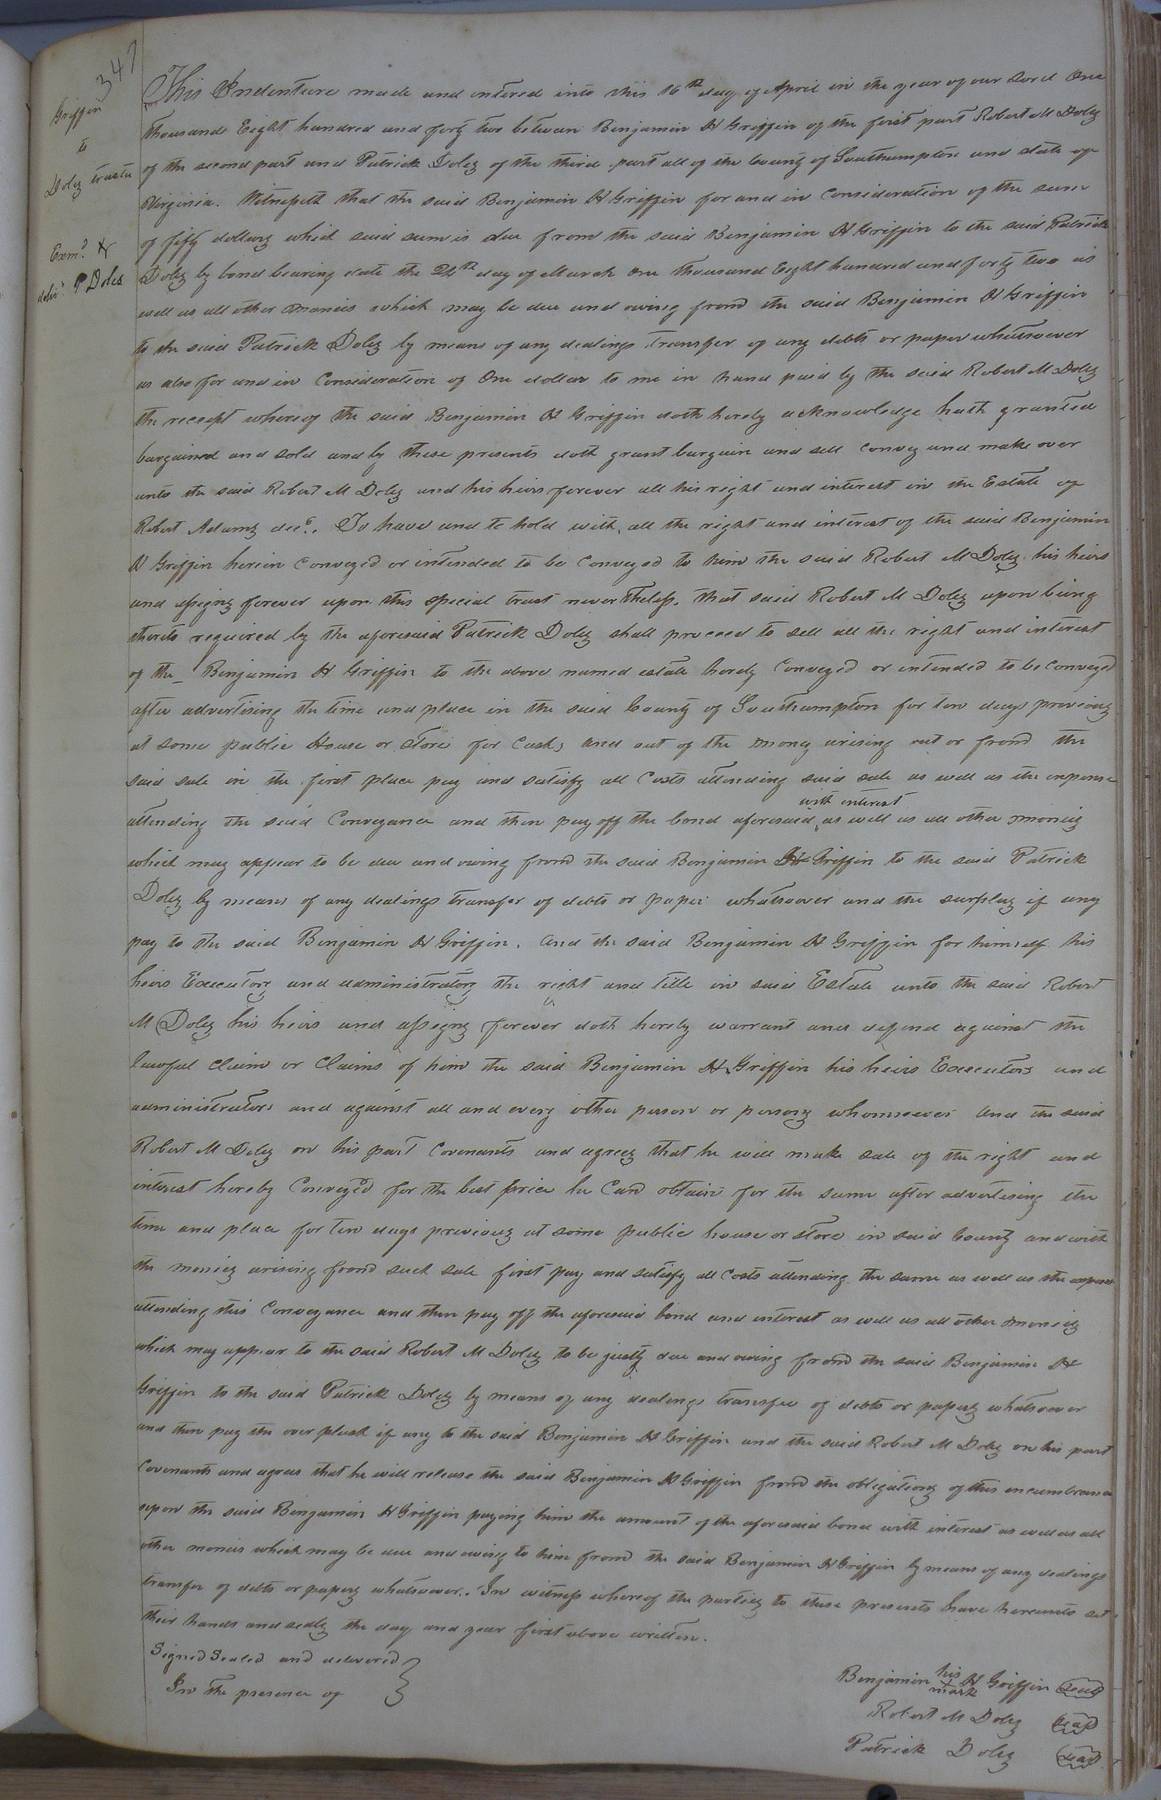 347
Griffin
to
Doles trustee
Exm.d &
deliv.d P Doles
This Indenture made and entered into this 16th day of April in the year of our Lord One
thousand Eight hundred and forty two between Benjamin H Griffin of the first part Robert M Doles
of the second part and Patrick Doles of the third part all of the County of Southampton and state of
Virginia. Witnesseth that the said Benjamin H Griffin for and in Consideration of the sum
of fifty dollars which said sum is due from the said Benjamin H Griffin to the said Patrick
Doles by bond bearing date the 24th day of March One thousand Eight hundred and forty two as
well as all other monies which may be due and owing from the said Benjamin H Griffin
to the said Patrick Doles by means of any dealings transfer of any debts or paper whatsoever
as also for and in Consideration of One dollar to me in hand paid by the said Robert M Doles
the receipt whereof the said Benjamin H Griffin doth hereby acknowledge hath granted
bargained and sold and by these presents doth grant bargain and sell convey and make over
unto the said Robert M Doles and his heirs forever all his right and interest in the Estate of
Robert Adams decd. To have and to hold with all the right and interest of the said Benjamin
H Griffin herein Conveyed or intended to be Conveyed to him the said Robert M Doles his heirs
and assigns forever upon this special trust nevertheless. that said Robert M Doles upon being
thereto required by the aforesaid Patrick Doles shall proceed to sell all the right and interest
of the Benjamin H Griffin to the above named estate hereby Conveyed or intended to be Conveyed
after advertising the time and place in the said County of Southampton for ten days previous
at some public House or Store for Cash, and out of the money arising out or from the
said sale in the first place pay and satisfy all Costs attending said sale as well as the expense
attending the said Conveyance and then pay off the bond aforesaid, with interest as well as all other monies
which may appear to be due and owing from the said Benjamin H Griffin to the said Patrick
Doles by means of any dealings transfer of debts or paper whatsoever and the surplus if any
pay to the said Benjamin H Griffin. And the said Benjamin H Griffin for himself his
heirs Executors and administrators the right and title in said Estate unto the said Robert
M Doles his heirs and assigns forever doth hereby warrant and defend against the
lawful Claim or Claims of him the said Benjamin H Griffin his heirs Executors and
administrators and against all and every other person or persons whomsoever And the said
Robert M Doles on his part Covenants and agrees that he will make sale of the right and
interest hereby Conveyed for the best price he Can obtain for the same after advertising the
time and place for ten days previous at some public house or Store in said County and with
the monies arising from such sale first pay and satisfy all costs attending the same as well as the expense
attending this Conveyance and then pay off the aforesaid bond and interest as well as all other monies
which may appear to the said Robert M Doles to be justly due and owing from the said Benjamin H
Griffin to the said Patrick Doles by means of any dealings transfer of debts or papers whatsoever
and then pay the over plush if any to the said Benjamin H Griffin and the said Robert M Doles on his part
Covenants and agrees that he will release the said Benjamin H Griffin from the obligations of this encumbrance
upon the said Benjamin H Griffin paying him the amount of the aforesaid bond with interest as well as all
other monies which may be due and owing to him from the said Benjamin H Griffin by means of any dealings
transfer of debts or papers whatsoever. In witness whereof the parties to these presents have hereunto set
their hands and seals the day and year first above written.
Signed Sealed and delivered }
In the presence of
Benjamin his mark H Griffin (seal)
Robert M Doles (seal)
Patrick Doles (seal)